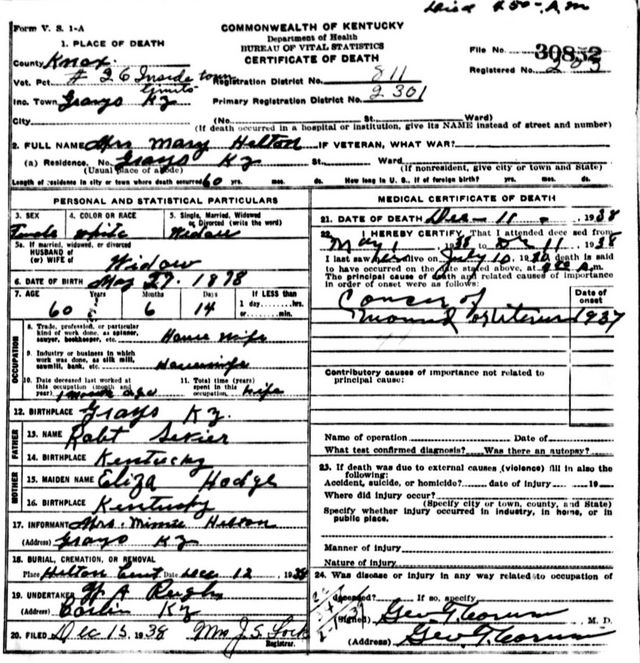 Died 250 A.M
Form V. S. 1-A
COMMONWEALTH OF KENTUCKY
Department of Health
BUREAU OF VITAL STATISTICS
CERTIFICATE OF DEATH
File No. 30852
Registered No.
1. PLACE OF DEATH
County Knox
Vot. Pct. # 26 Inside town limits
Registration District No. 811
Inc. Town Grays Ky
Primary Registration District No. 2301
City (No. St. Ward)
(If death occurred in a hospital or institution, give its NAME instead of street and number)
2. FULL NAME Mrs Mary Helton IF VETERAN, WHAT WAR?
(a) Residence. No. Grays Ky St. Ward
(Usual place of abode) (If nonresident, give city or town and State)
Length of residence in city or town where death occurred 60 yrs. mos. ds. How long in U. S., if of foreign birth? yrs. mos. ds.
PERSONAL AND STATISTICAL PARTICULARS
3. SEX
4. COLOR OR RACE White
5. Single, Married, Widowed or Divorced (write the word)
Widow
5a. If married, widowed, or divorced
HUSBAND of
(or) WIFE of Widow
6. DATE OF BIRTH May 27. 1878
7. AGE Years Months Days If LESS than
60 6 14 1 day, hrs. or min.
OCCUPATION
8. Trade, profession, or particular kind of work done, as spinner, sawyer, bookkeeper, etc. House wife
9. Industry or business in which work was done, as silk mill, sawmill, bank, etc. Housewife
10. Date deceased last worked at this occupation (month and year) 1 month ago
11. Total time (years) spent in this occupation life
12. BIRTHPLACE Grays Ky.
FATHER
13. NAME Robt
14. BIRTHPLACE Kentucky
MOTHER
15. MAIDEN NAME Eliza Hodge
16. BIRTHPLACE Kentucky
17. INFORMANT Mrs. Minnie Helton
(Address) Grays Ky
18. BURIAL, CREMATION, OR REMOVAL
Place Helton Cem Date Dec 12, 1938
19. UNDERTAKER
(Address) Corbin Ky
20. FILED Dec 15, 1938 Mrs J. S. Registrar.
MEDICAL CERTIFICATE OF DEATH
21. DATE OF DEATH Dec - 11 - 1938
22. I HEREBY CERTIFY, That I attended deceased from
May 1 1938 to Dec 11, 1938
I last saw her alive on July 10, 19 death is said
to have occurred on the date stated above, at m.
The principal cause of death and related causes of importance in order of onset were as follows:
Date of onset
Cancer of
1937
Contributory causes of importance not related to principal cause:
Name of operation Date of
What test confirmed diagnosis? Was there an autopsy?
23. If death was due to external causes (violence) fill in also the following:
Accident, suicide, or homicide? date of injury 19
Where did injury occur?
(Specify city or town, county, and State)
Specify whether injury occurred in industry, in home, or in public place.
Manner of injury
Nature of injury
24. Was disease or injury in any way related to occupation of deceased? If so, specify
(Signed) Geo T. Corum M. D.
(Address) Geo T. Corum